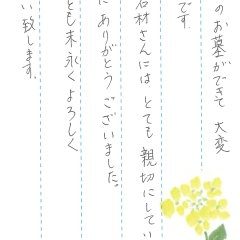 のお墓ができて 大変
です。
石材さんには とても 親切にして
にありがとうございました。
とも末永くよろしく
い致します。